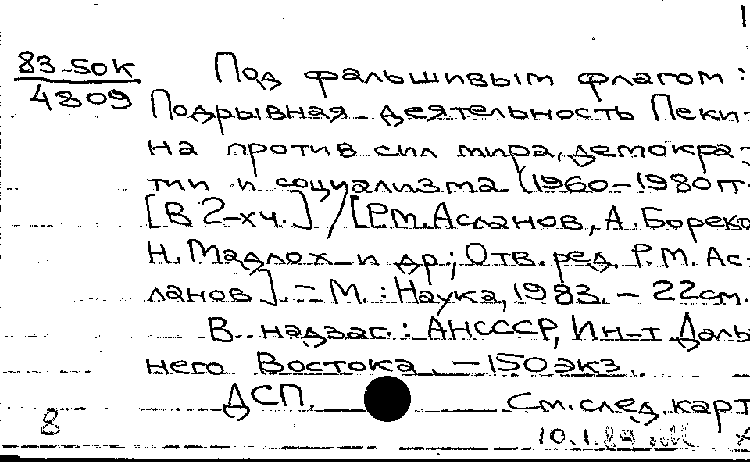 83-5ок Под фальшивым флагом:
4309 Подрывная деятельность Пеки-
на против сил мира, демокра-
тии и социализма (1960-1980гг
[В 2-х ч.] / [Р.М. Асланов, А. Бореко
Н. Мадлох и др.; Отв. ред. Р.М. Ас-
ланов]. - М.: Наука, 1983. - 22см.
В надзаг.: АН СССР, Ин-т Даль
него Востока. - 150 экз.
ДСП. См. след. карт
8 10.1.84